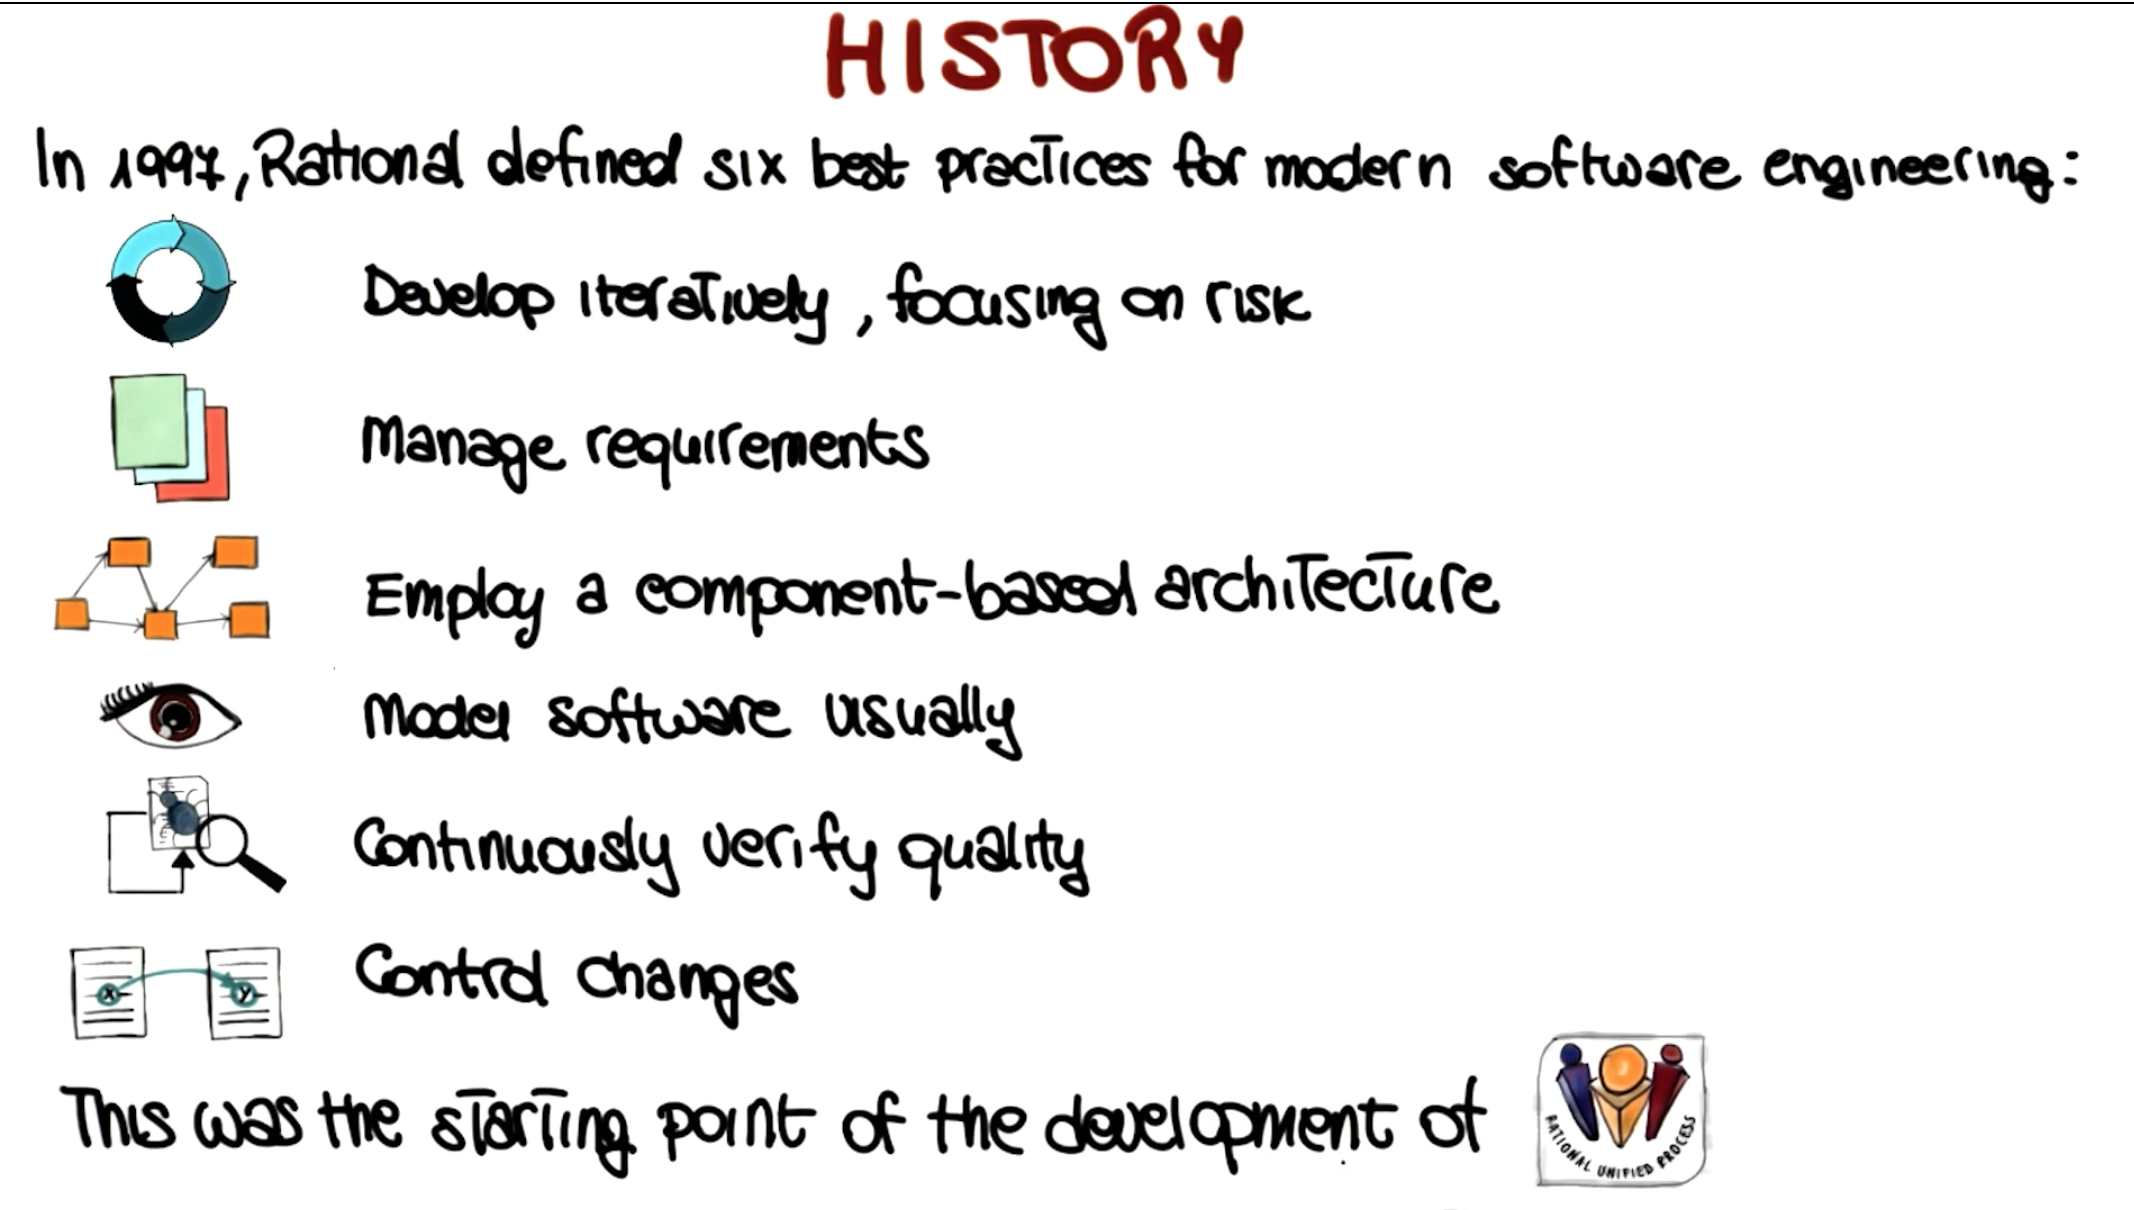 HISTORY
In 1997, Rational defined six best practices for modern software engineering:
Develop iteratively, focusing on risk
Manage requirements
Employ a component-based architecture
Model software usually
Continuously verify quality
Control changes
x y
This was the starting point of the development of
RATIONAL UNIFIED PROCESS